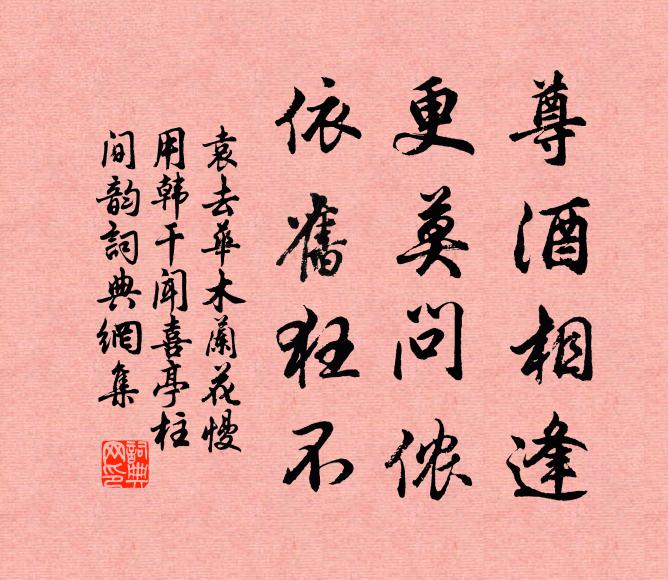 尊酒相逢
更莫问侬
依舊狂不
袁去華木蘭花慢
用韩干闻喜亭柱
间韵詞典網集
詞典
网印